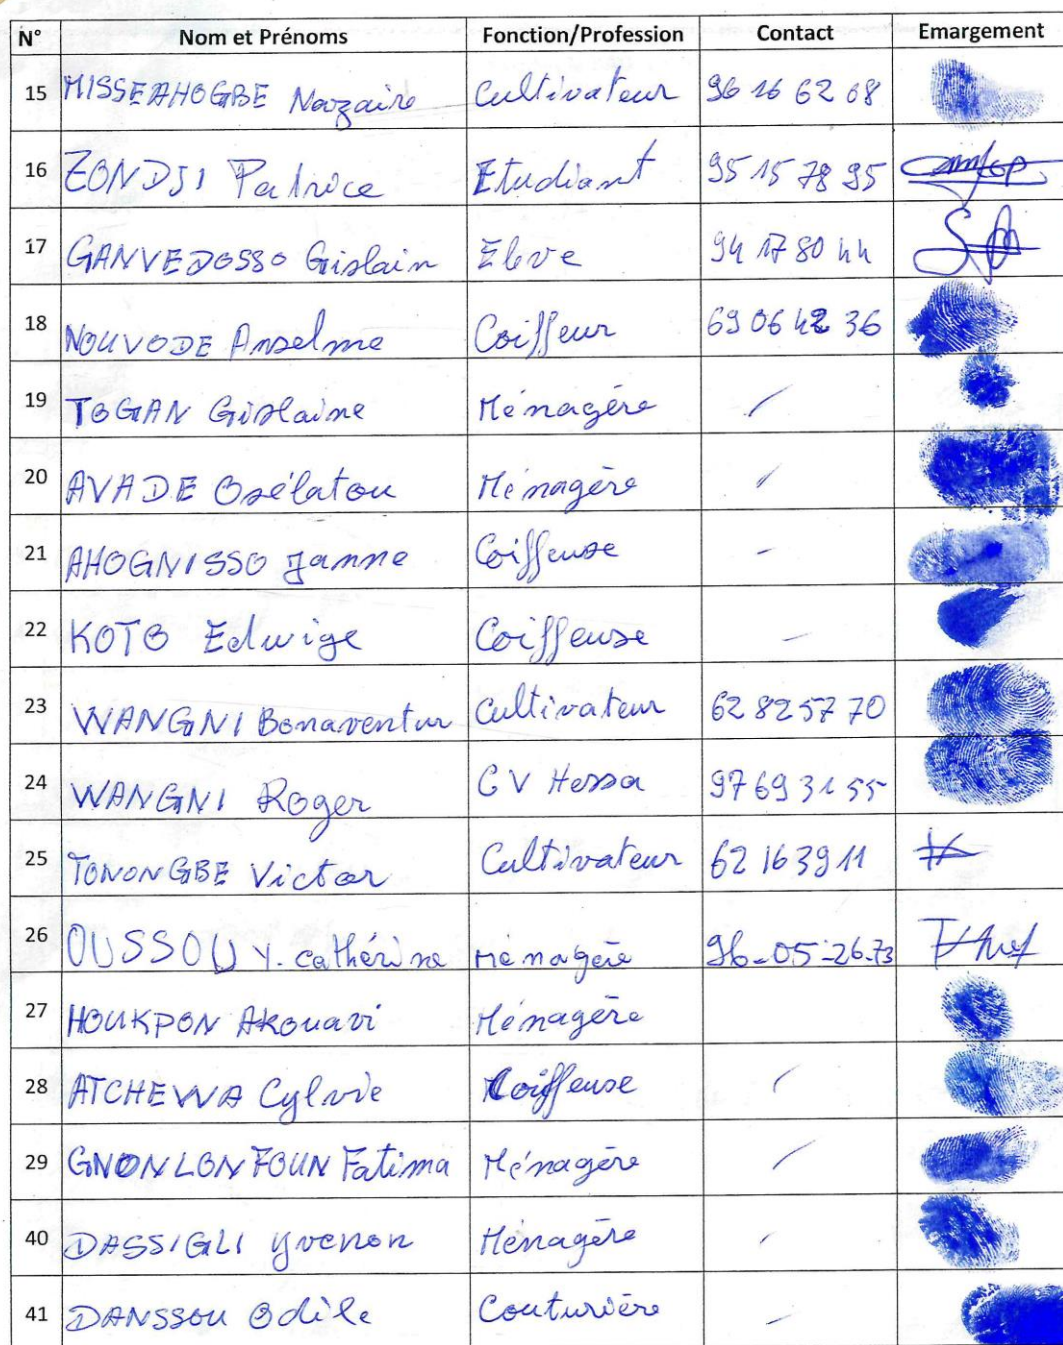 N° Nom et Prénoms Fonction/Profession Contact Emargement
15 MISSEAHOGBE Nazaire Cultivateur 96 16 62 08
16 ZONDJI Patrice Etudiant 95 15 78 95
17 GANVEDOSSO Gislain Elève 94 17 80 44
18 NOUVODE Anselme Coiffeur 69 06 42 36
19 TOGAN Gislaine Ménagère /
20 AVADE Osélatou Ménagère /
21 AHOGNISSO Janne Coiffeuse -
22 KOTO Edwige Coiffeuse -
23 WANGNI Bonaventur Cultivateur 62 82 57 70
24 WANGNI Roger CV Hessa 97 69 31 55
25 TONONGBE Victor Cultivateur 62 16 39 11
26 OUSSOU Y. Cathérine Ménagère 96-05-26-73
27 HOUKPON Akouavi Ménagère
28 ATCHEWA Cylvie Coiffeuse /
29 GNONLONFOUN Fatima Ménagère /
40 DASSIGLI Yvenon Ménagère /
41 DANSSOU Odile Couturière /